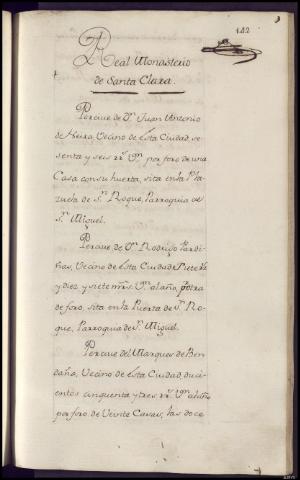 142
Real Monasterio
de Santa Clara.
Percive de Dn. Juan Antonio
de Neira, Vecino de esta Ciudad, se
senta y seis rrs. Vn. por foro de una
Casa con su huerta, sita en la Pla
zuela de Sn. Roque, Parroquia de
Sn. Miguel.
Percive de Dn. Rodrigo Pardi
ñas, Vecino de esta Ciudad, siete rrs
y diez y siete mrs. Vn. al año, por
de foro, sita en la Puerta de Sn. Ro
que, Parroquia de Sn. Miguel.
Percive del Marques de Ben
daña, Vecino de esta Ciudad, duci
entos cinquenta y tres rrs. Vn. al año
por foro de Veinte Casas, las doce